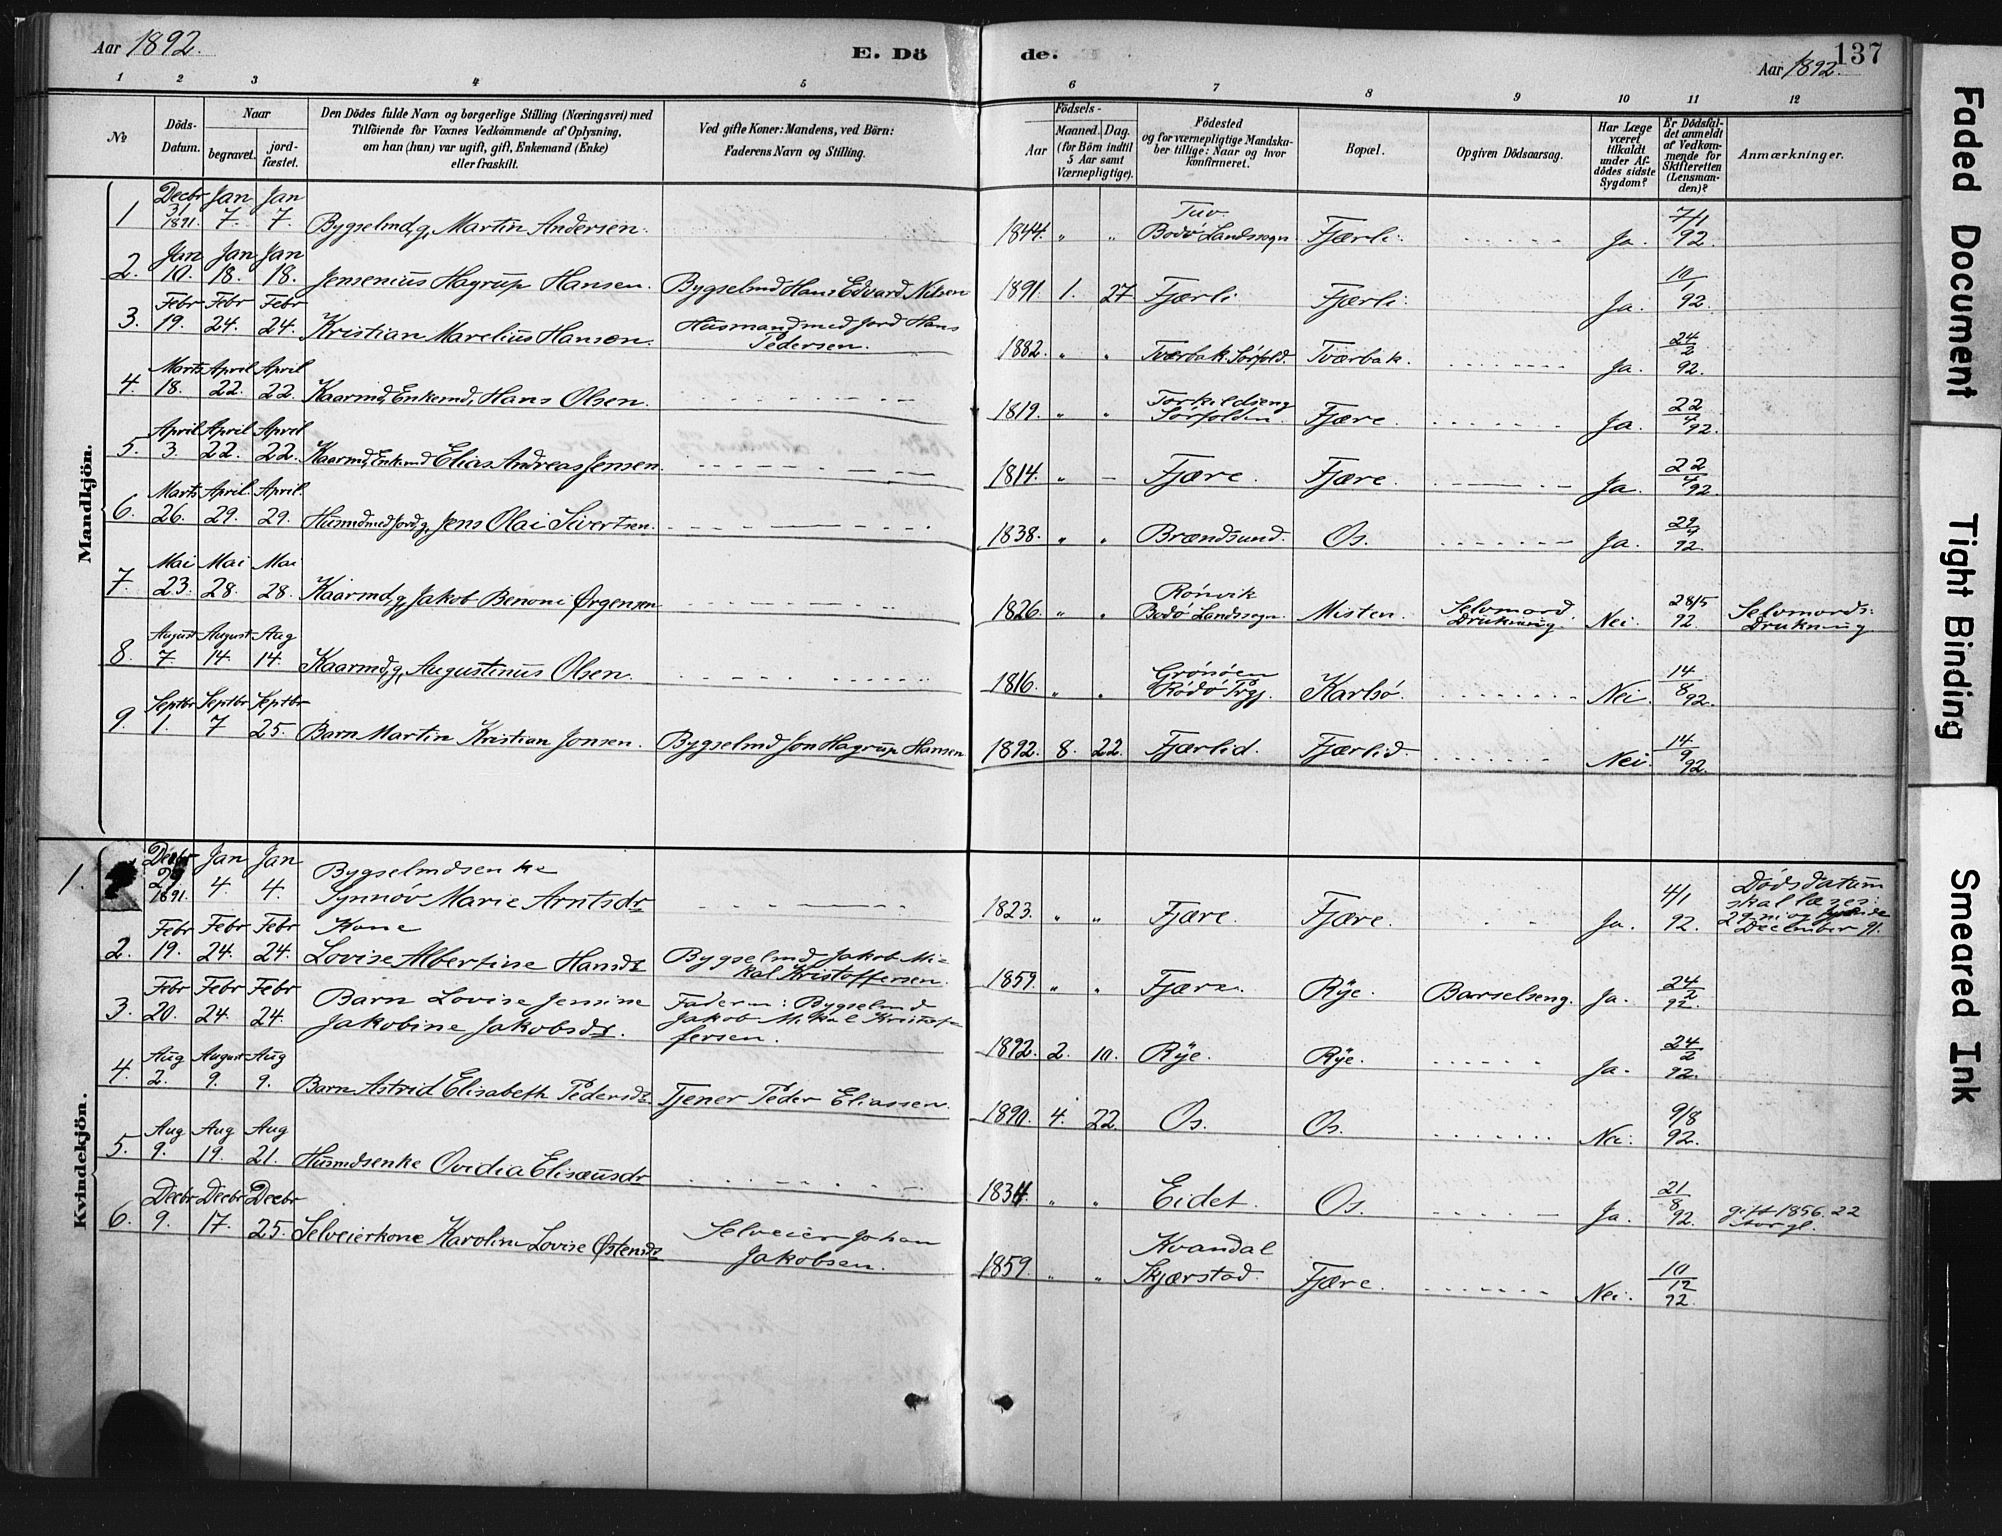 Aar 1892.
E. Dö de.
Aar 1892.
137
1 2 3 4 5 6 7 8 9 10 11 12
No
Döds-Datum.
Naar
begravet.
jord-fæstet.
Den Dödes fulde Navn og borgerlige Stilling (Næringsvei) med
Tilföiende for Voxnes Vedkommende af Oplysning,
om han (hun) var ugift, gift, Enkemand (Enke)
eller fraskilt.
Ved gifte Koner: Mandens, ved Börn:
Faderens Navn og Stilling.
Födsels-
Aar
Maaned. Dag.
(for Börn indtil
5 Aar samt
Værnepligtige).
Födested
og for værnepligtige Mandska-
ber tillige: Naar og hvor
konfirmeret.
Bopæl.
Opgiven Dödsaarsag.
Har Læge
været
tilkaldt
under Af-
dödes sidste
Sygdom?
Er Dödsfal-
det anmeldt
af Vedkom-
mende for
Skifteretten
(Lensman-
den)?
Anmærkninger.
Mandkjön.
1 Decbr 31 1891. Jan 7. Jan 7. Bygselmd, g, Martin Andersen. 1844. " " Tuv. Bodø Landssogn Fjærli. Ja. 7/1 92.
2. Jan 10. Jan 18. Jan 18. Jensenius Hagrup Hansen. Bygselmd Hans Edvard Nilsen 1891. 1. 27 Fjærli Fjærli. Ja. 10/1 92.
3. Febr 19. Febr 24. Febr 24. Kristian Marelius Hansen. Husmand med jord Hans Pedersen. 1882. " " Tværbak. Sørfold. Tværbak. Ja. 24/2 92.
4. Marts 18. April 22. April 22. Kaarmd, Enkemd, Hans Olsen. 1819. " " Torkildseng Sørfolden. Fjære. Ja. 22/4 92.
5. April 3. April 22. April 22. Kaarmd, Enkemd Elias Andreas Jensen 1814. " - Fjære. Fjære. Ja. 22/4 92.
6. Marts 26. April 29. April 29. Husmd med jord, g, Jens Olai Sivertsen. 1838. " " Brændsund. Os. Ja. 29/4 92.
7. Mai 23. Mai 28. Mai 28. Kaarmd, g, Jakob Benoni Ørgensen 1826. " " Rønvik Bodø Landssogn. Misten. Selvmord Drukning. Nei. 28/5 92. Selvmords: Drukning
8. August 7. August 14. Aug 14. Kaarmd, g, Augustinus Olsen. 1816. " " Grønøen Rødø Prgj. Karlsø. Nei. 14/8 92.
9. Septbr 1. Septbr 7 Septbr 25. Barn Martin Kristian Jonsen. Bygselmd Jon Hagrup Hansen 1892. 8. 22. Fjærlid. Fjærlid. Nei. 14/9 92.
Kvindekjön.
1. Decbr 29 1891. Jan 4. Jan 4. Bygselmdsenke Synnøv Marie Arntsdr 1823. " " Fjære. Fjære. Ja. 4/1 92. Dødsdatum skal læses: 29 ni og tyvende December 91.
2. Febr 19. Febr 24. Febr 24. Kone Lovise Albertine Hansdr Bygselmd Jakob Mikal Kristoffersen. 1859. " " Fjære. Rÿe. Barselseng. Ja. 24/2 92.
3. Febr 20. Febr 24. Febr 24. Barn Lovise Jensine Jakobine Jakobsdr. Faderen: Bygselmd Jakob Mikal Kristoffersen. 1892. 2. 10. Rÿe. Rÿe. Ja. 24/2 92.
4. Aug 2. August 9. Aug 9. Barn Astrid Elisabeth Pedersdr. Tjener Peder Eliassen. 1890. 4. 22. Os. Os. Nei. 9/8 92.
5. Aug 9. Aug 19. Aug 21. Husmdsenke Ovidia Elisæusdr 1834. " " Eidet. Os. Ja. 21/8 92. gift 1856. 22
6. Decbr 9. Decbr 17. Decbr 25. Selveierkone Karoline Lovise Østensdr Selveier Johan Jakobsen. 1859. " " Kvandal Skjærstad. Fjære. Nei. 10/12 92.
Faded Document
Tight Binding
Smeared Ink